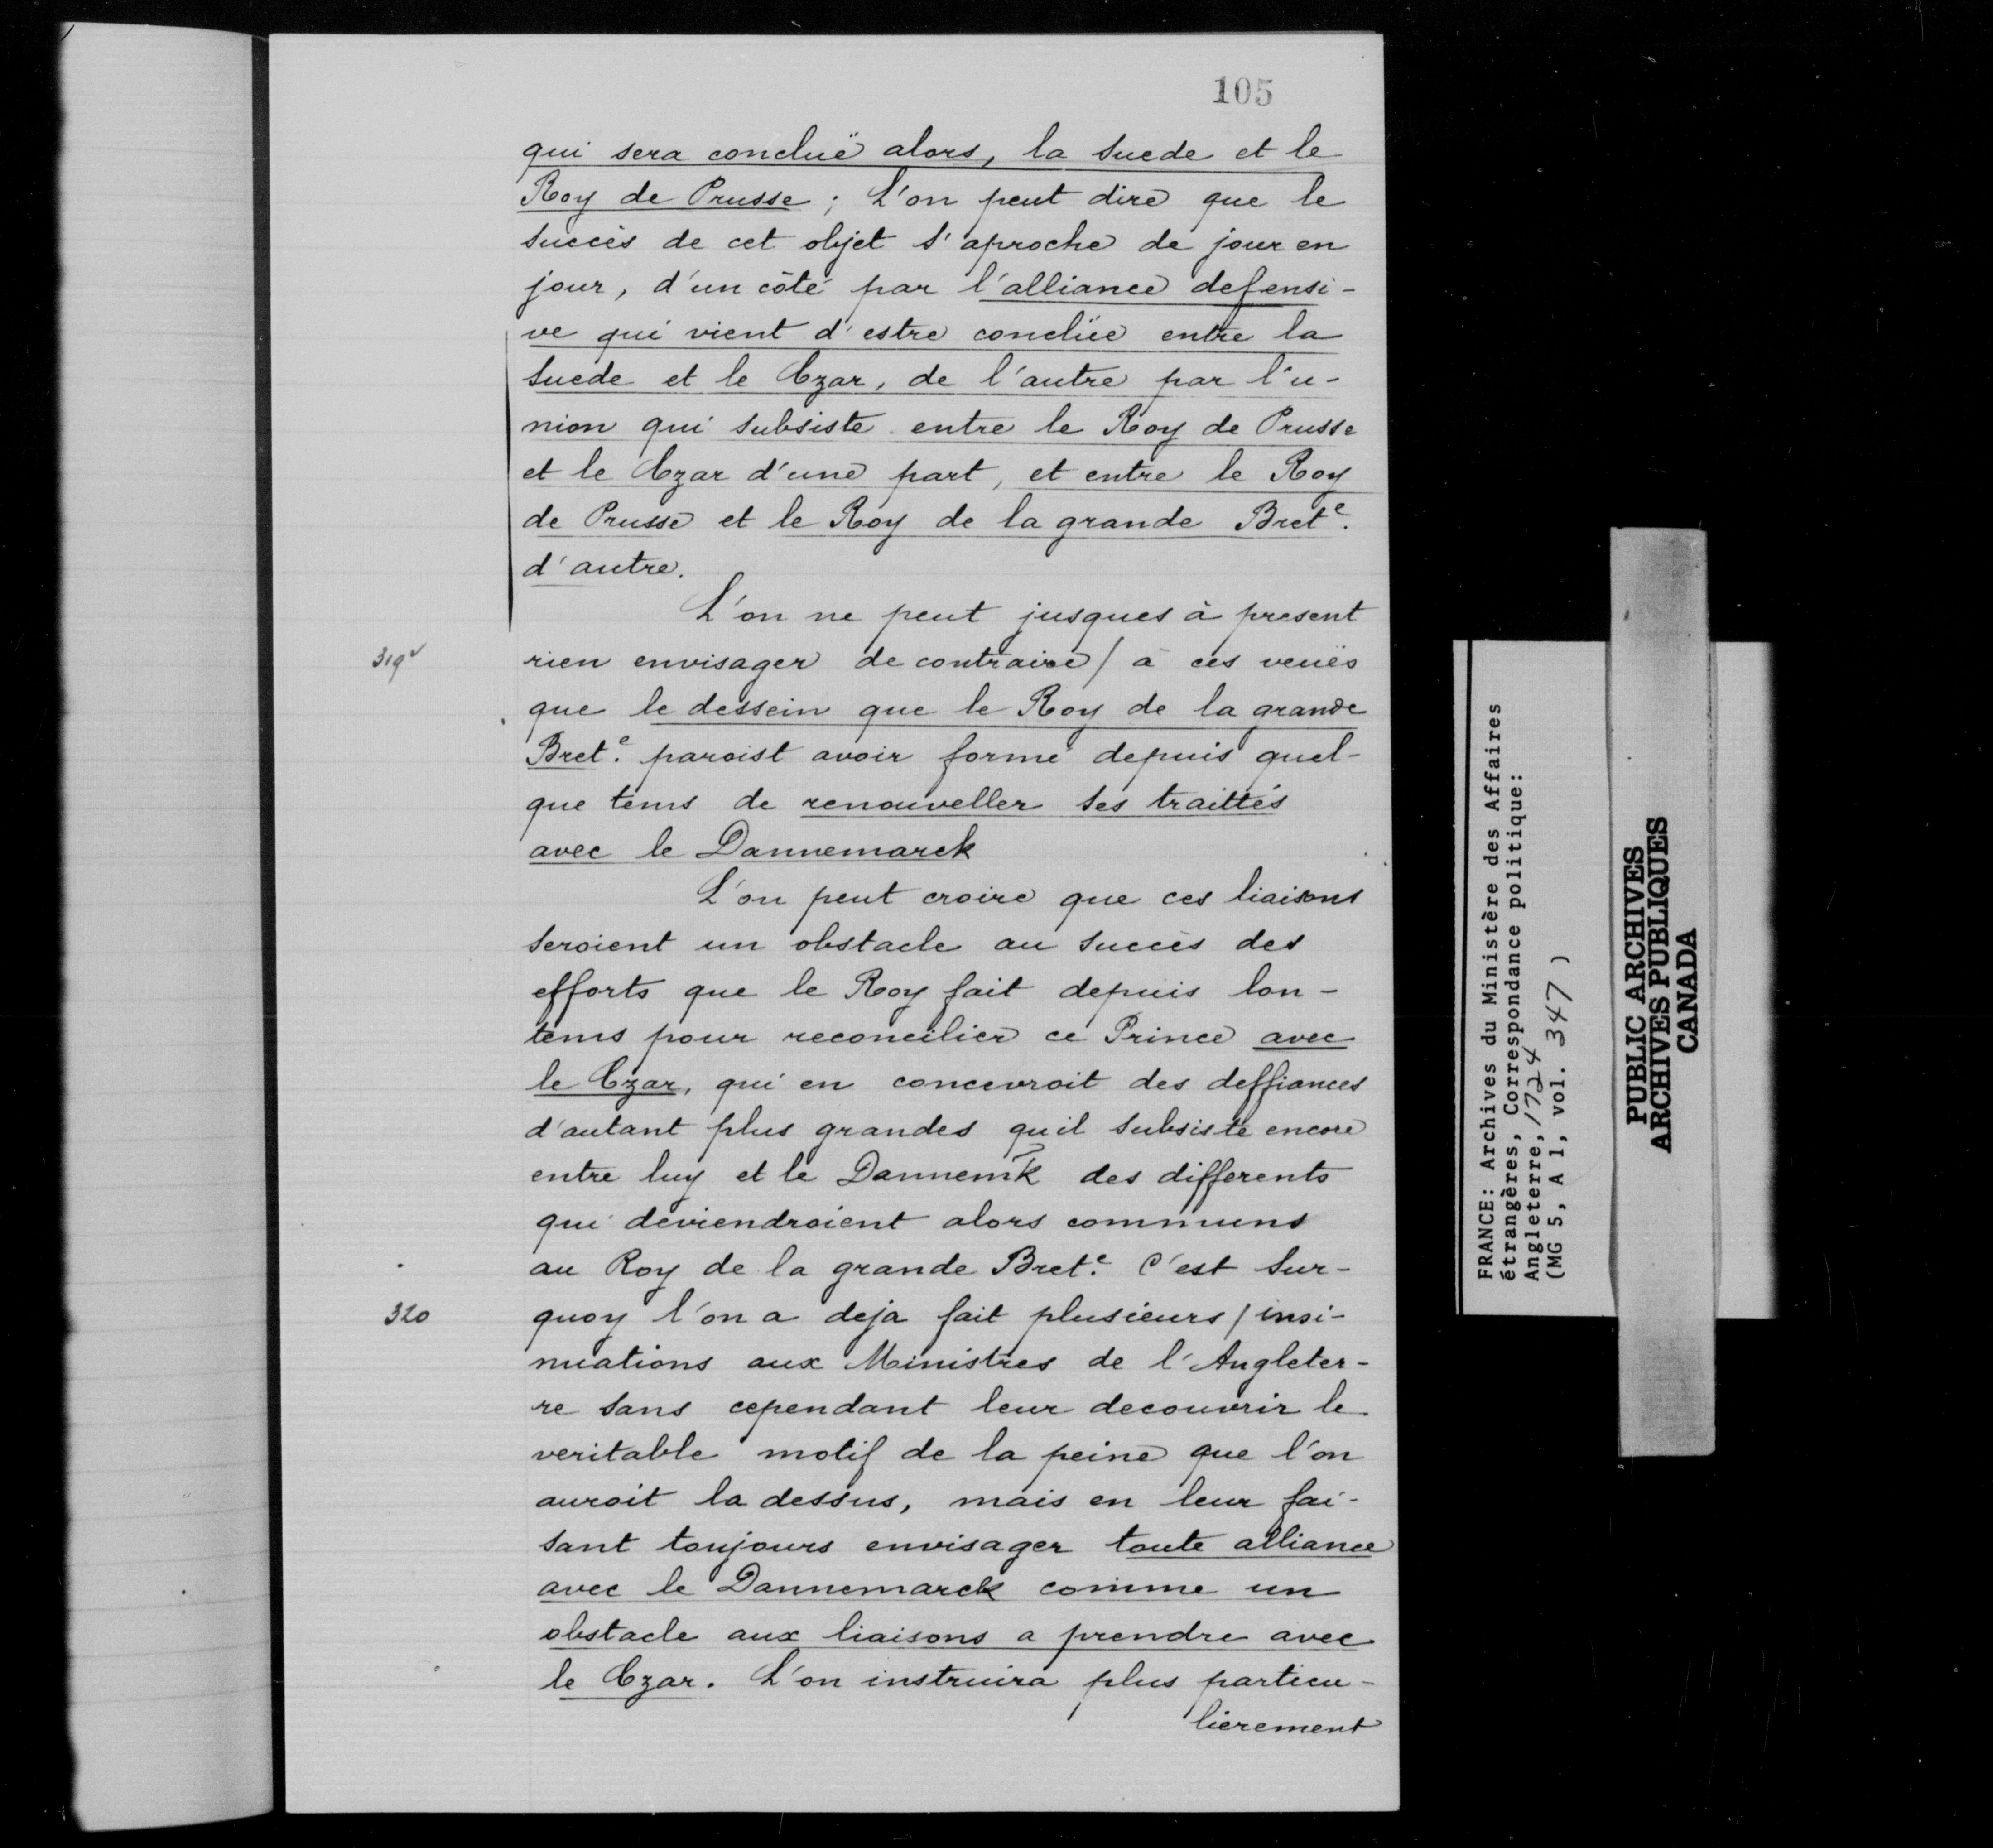 105
qui sera concluë alors, la Suede et le
Roy de Prusse ; L'on peut dire que le
succès de cet objet s'aproche de jour en
jour, d'un côté par l'alliance defensi-
ve qui vient d'estre conclüe entre la
Suede et le Czar, de l'autre par l'u-
nion qui subsiste entre le Roy de Prusse
et le Czar d'une part, et entre le Roy
de Prusse et le Roy de la grande Bret.e
d'autre.
L'on ne peut jusques à present
319v
rien envisager de contraire / à ces veües
que le dessein que le Roy de la grande
Bret.e paroist avoir formé depuis quel-
que tems de renouveller ses traittés
avec le Dannemarck
L'on peut croire que ces liaisons
seroient un obstacle au succès des
efforts que le Roy fait depuis lon-
tems pour reconcilier ce Prince avec
le Czar, qui en concevroit des deffiances
d'autant plus grandes quil subsiste encore
entre luy et le Dannemk des differents
qui deviendroient alors communs
au Roy de la grande Bret.e C'est sur-
320
quoy l'on a deja fait plusieurs / insi-
nuations aux Ministres de l'Angleter-
re sans cependant leur decouvrir le
veritable motif de la peine que l'on
auroit la dessus, mais en leur fai-
sant toujours envisager toute alliance
avec le Dannemarck comme un
obstacle aux liaisons a prendre avec
le Czar. L'on instruira plus particu-
lierement
FRANCE: Archives du Ministère des Affaires
étrangères, Correspondance politique:
Angleterre, 1724
(MG 5, A 1, vol. 347 )
PUBLIC ARCHIVES
ARCHIVES PUBLIQUES
CANADA